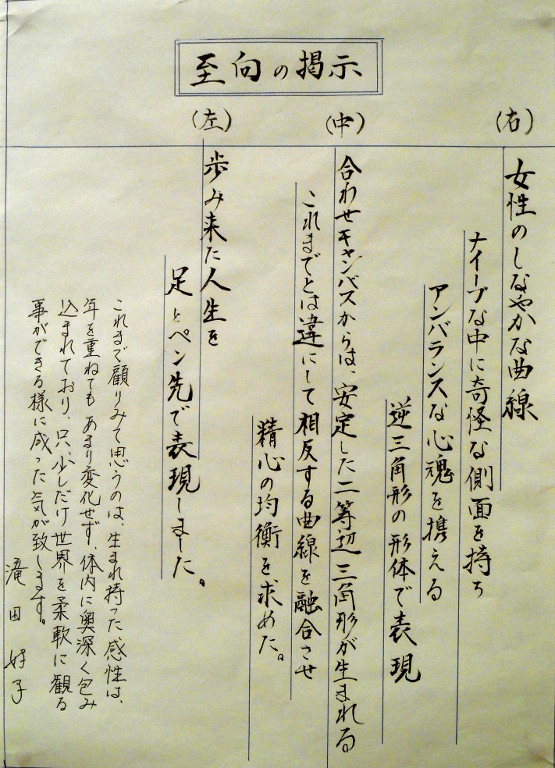 至向の掲示
(右)
女性のしなやかな曲線
ナイーブな中に奇怪な側面を持ち
アンバランスな心魂を携える
逆三角形の形体で表現
(中)
合わせキャンバスからは、安定した二等辺三角形が生まれる
これまでとは違にして相反する曲線を融合させ
精心の均衡を求めた。
(左)
歩み来た人生を
足とペン先で表現しました。
これまで顧りみて思うのは、生まれ持った感性は、
年を重ねてもあまり変化せず、体内に奥深く包み
込まれており、只、少しだけ世界を柔軟に観る
事ができる様に成った気が致します。
滝田好子